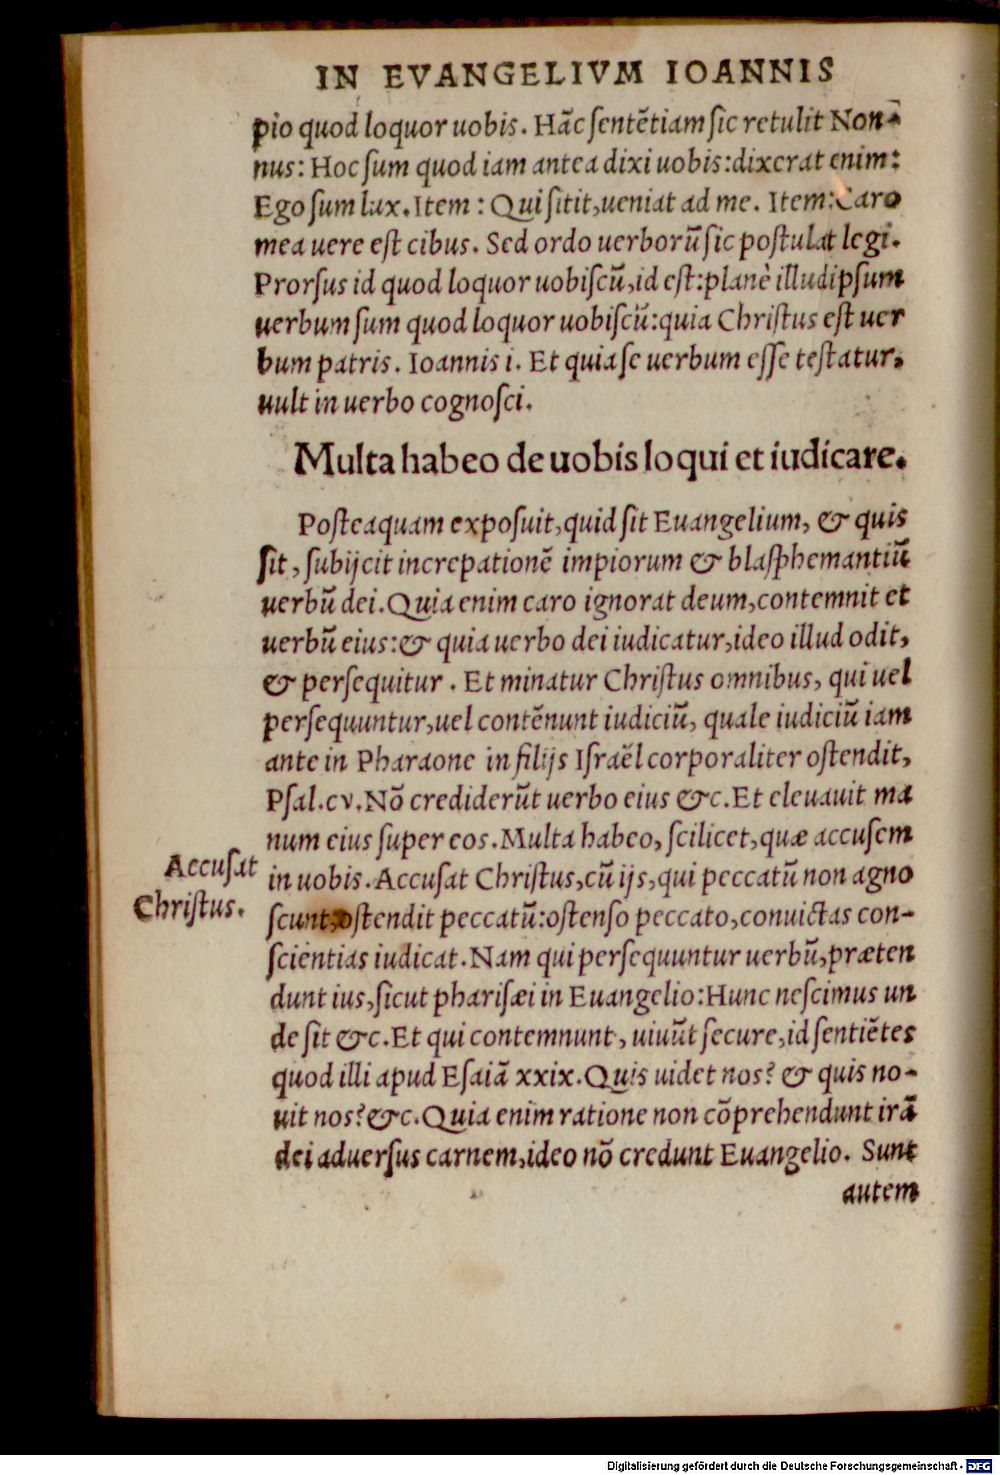 IN EVANGELIVM IOANNIS
pio quod loquor uobis. Hãc ſentẽtiam ſic retulit Non-
nus: Hoc ſum quod iam antea dixi uobis: dixerat enim:
Ego ſum lux. Item: Qui ſitit, ueniat ad me. Item: Caro
mea uere eſt cibus. Sed ordo uerborũ ſic poſtulat legi.
Prorſus id quod loquor uobiſcũ, id eſt: planè illud ipſum
uerbum ſum quod loquor uobiſcũ: quia Chriſtus eſt uer
bum patris. Ioannis i. Et quia ſe uerbum eſſe teſtatur,
uult in uerbo cognoſci.
Multa habeo de uobis loqui et iudicare.
Poſteaquam expoſuit, quid ſit Euangelium, & quis
ſit, ſubijcit increpationẽ impiorum & blaſphemantiũ
uerbũ dei. Quia enim caro ignorat deum, contemnit et
uerbũ eius: & quia uerbo dei iudicatur, ideo illud odit,
& perſequitur. Et minatur Chriſtus omnibus, qui uel
perſequuntur, uel contẽnunt iudiciũ, quale iudiciũ iam
ante in Pharaone in filijs Iſraël corporaliter oſtendit,
Pſal. cv. Nõ crediderũt uerbo eius &c. Et eleuauit ma
num eius ſuper eos. Multa habeo, ſcilicet, quæ accuſem
in uobis. Accuſat Chriſtus, cũ ijs, qui peccatũ non agno
ſcunt, oſtendit peccatũ: oſtenſo peccato, conuictas con-
ſcientias iudicat. Nam qui perſequuntur uerbũ, præten
dunt ius, ſicut phariſæi in Euangelio: Hunc neſcimus un
de ſit &c. Et qui contemnunt, uiuũt ſecure, id ſentiẽtes
quod illi apud Eſaiã xxix. Quis uidet nos? & quis no-
uit nos? &c. Quia enim ratione non cõprehendunt irã
dei aduerſus carnem, ideo nõ credunt Euangelio. Sunt
autem
Accuſat
Chriſtus.
Digitalisierung gefördert durch die Deutsche Forschungsgemeinschaft - DFG